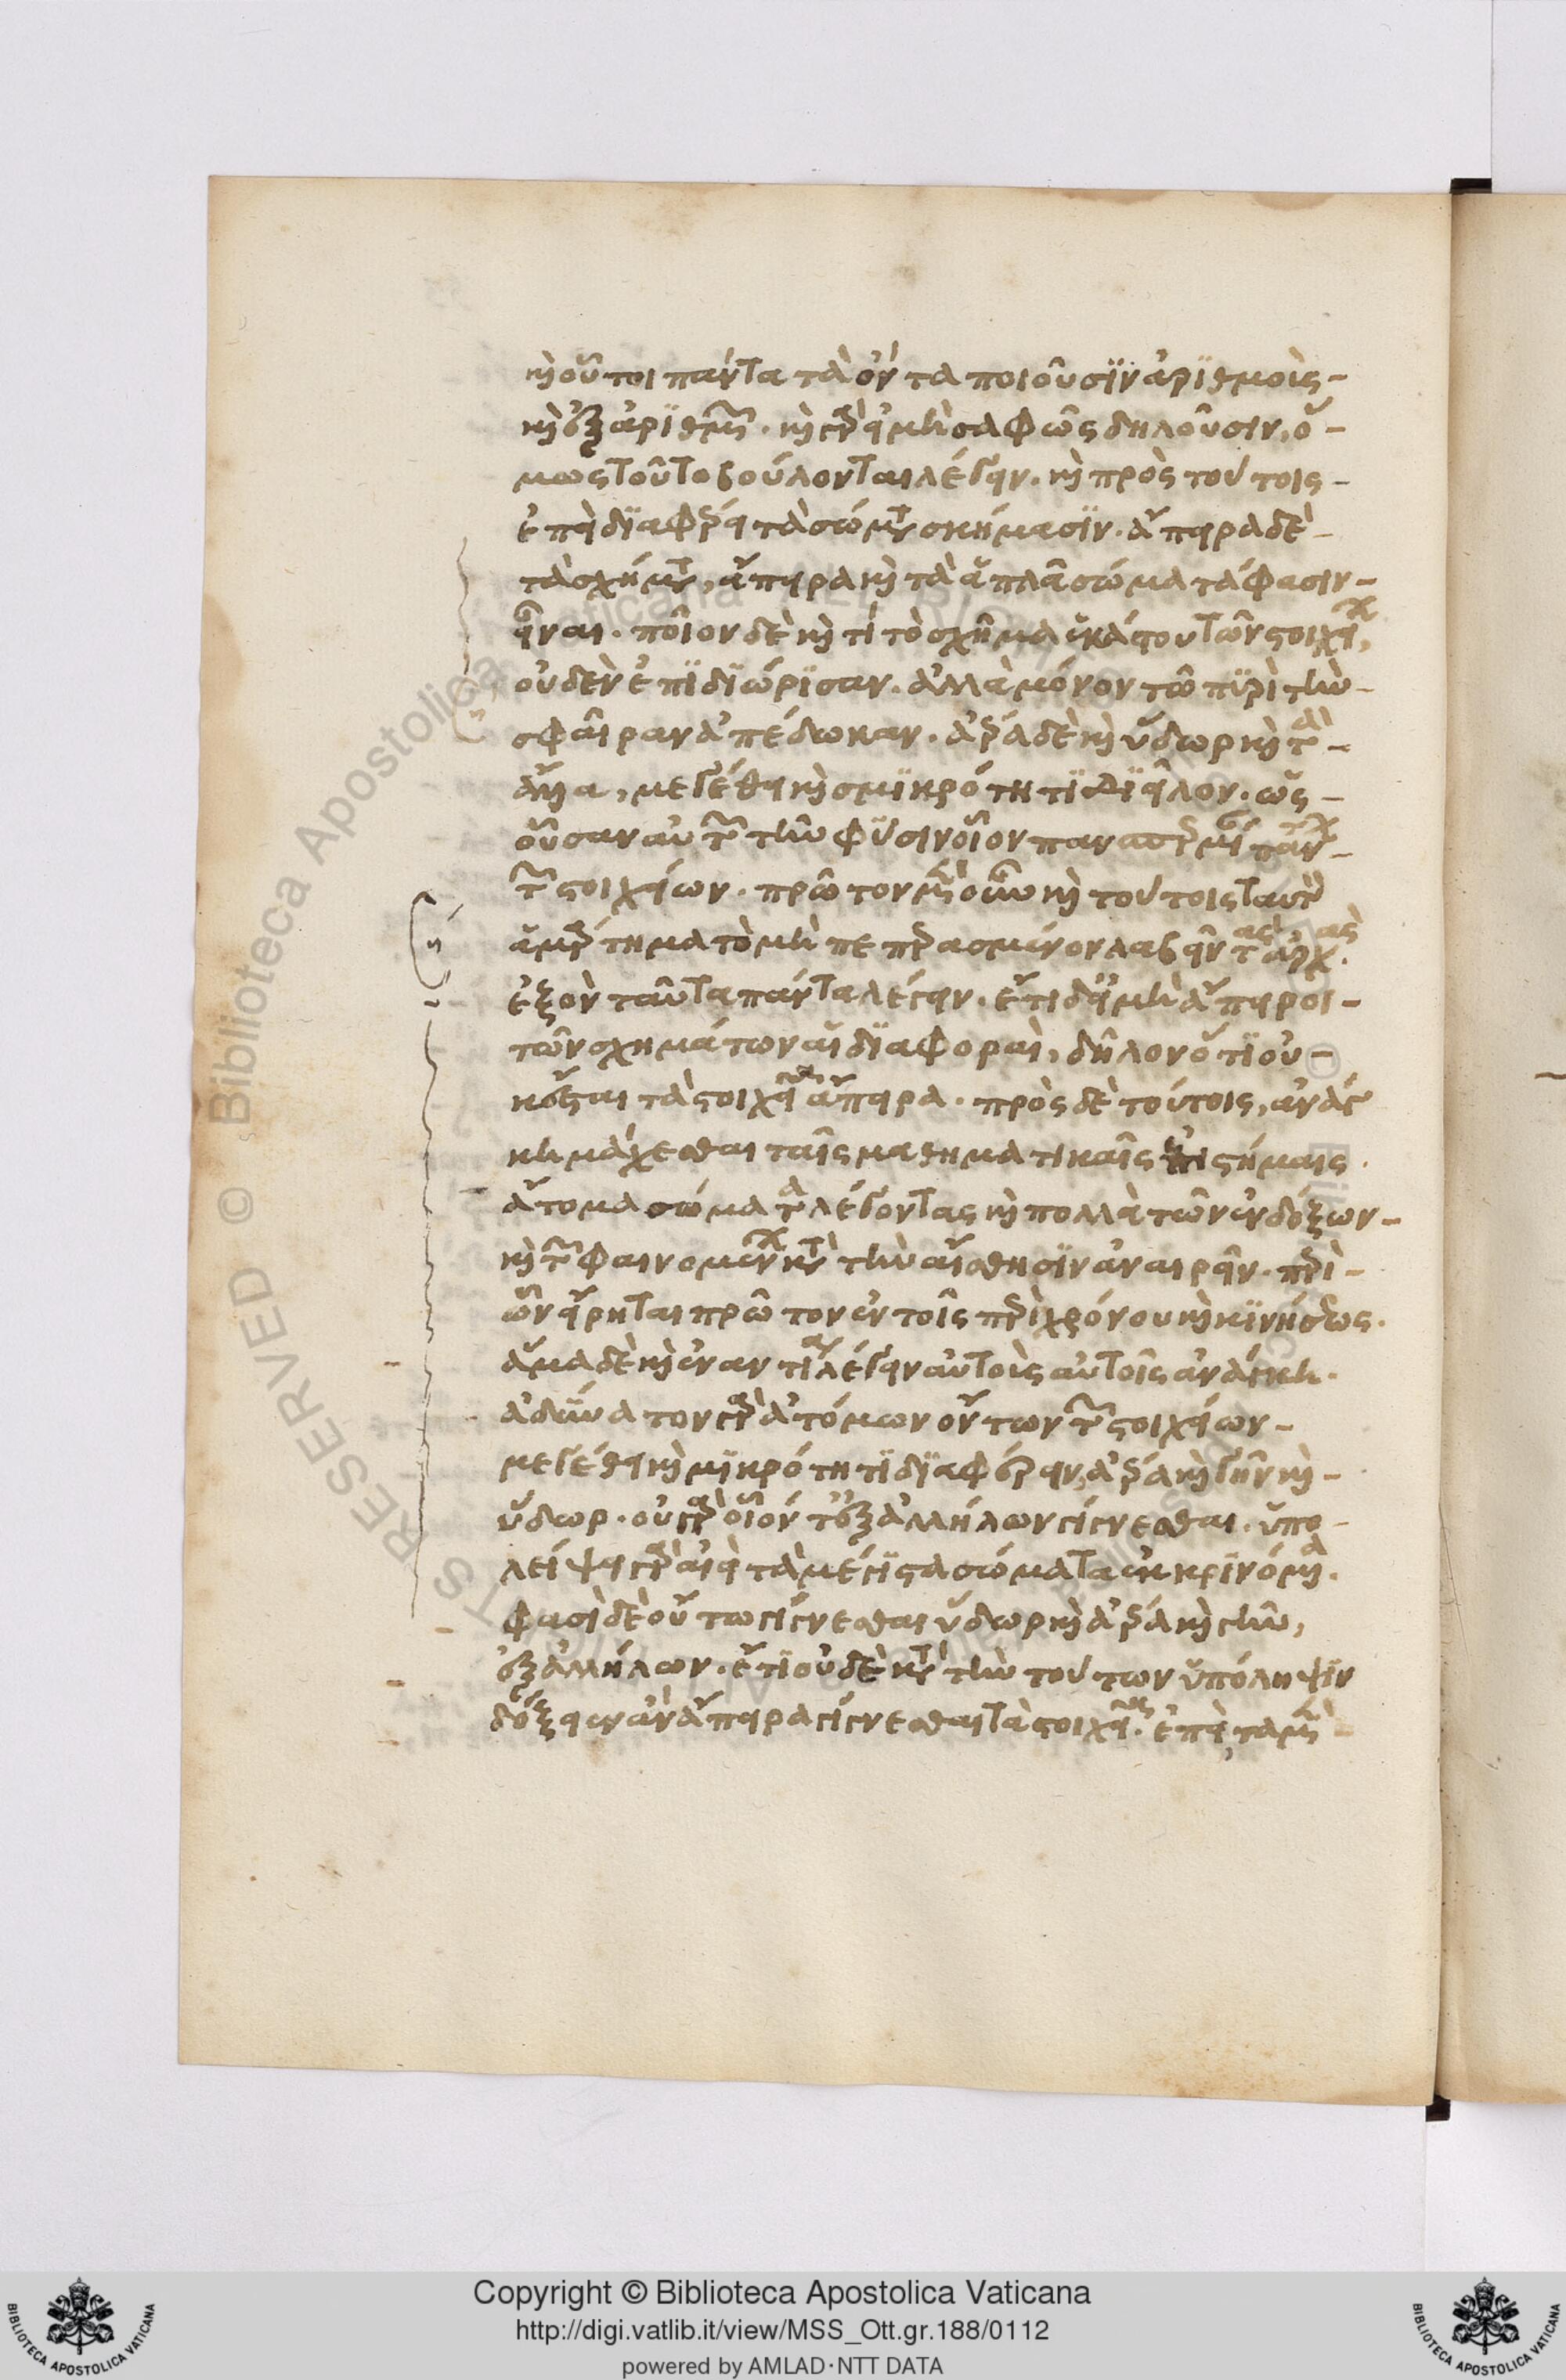 καὶ οὗτοι πάντα τὰ ὄντα ποιοῦσϊν ἀρϊθμοὺς-
καὶ ἐξ ἀρϊθμῶν. καὶ γὰρ εἰ μὴ σαφῶς δηλοῦσιν, ὅ-
μως τοῦτο βούλονται λέγειν. καὶ πρὸς τούτοις-
ἐπεὶ δϊαφέρει τὰ σώματα σχήμασϊν. ἄπειρα δὲ-
τὰ σχήματα, ἄπειρα καὶ τὰ ἁπλᾶ σώματά φασιν-
εἶναι. ποῖον δὲ καὶ τί τὸ σχῆμα ἑκάστου τῶν στοιχείων,
οὐδὲν ἐπϊδϊώρϊσαν. ἀλλὰ μόνον τῶ πϋρὶ τὴν-
σφαῖραν ἀπέδωκαν. ἀέρα δὲ καὶ ὕδωρ καὶ τὰ-
ἄλλα, μεγέθει καὶ σμϊκρότητϊ διεῖλον. ὡς-
οὖσαν αὐτῶν τὴν φύσιν οἷον πανσπερμίαν πάντων-
τῶν στοιχείων. πρῶτον μὲν οὖν καὶ τούτοις ταυτὸν
ἁμάρτημα τὸ μὴ πεπερασμένον λαβεῖν τὰς ἀρχάς.
ἐξὸν ταῦτα πάντα λέγειν. ἔτι δ' εἰ μὴ ἄπειροι-
τῶν σχημάτων αἱ δϊαφοραὶ, δῆλον ὅτϊ οὐ-
κ ἔσται τὰ στοιχεῖα ἄπειρα. πρὸς δὲ τούτοις, ἀνάγ
κη μάχεσθαι ταῖς μαθηματικαῖς ἐπιστήμαις.
ἄτομα σώματα λέγοντας καὶ πολλὰ τῶν ἐνδόξων-
καὶ τῶν φαινομένων κατὰ τὴν αἴσθησϊν ἀναιρεῖν. περὶ-
ὧν εἴρηται πρῶτον ἐν τοῖς περὶ χρόνου καὶ κϊνήσεως.
ἅμα δὲ καὶ ἐναντία λέγειν αὐτοὺς αὑτοῖς ἀνάγκη.
ἀδύνατον γὰρ ἀτόμων ὄντων τῶν στοιχείων-
μεγέθει καὶ μϊκρότητϊ δϊαφέρειν ἀέρα καὶ γῆν καὶ-
ὕδωρ. οὐ γὰρ οἷόν τ' ἐξ ἀλλήλων γίγνεσθαι. ὑπο-
λείψει γὰρ αἰεὶ τὰ μέγϊστα σώματα ἐκκρϊνόμενα.
φασὶ δὲ οὕτω γίγνεσθαι ὕδωρ καὶ ἀέρα καὶ γῆν,
ἐξ ἀλλήλων. ἔτϊ οὐδὲ κατὰ τὴν τούτων ὑπόληψϊν
δόξειεν ἂν ἄπειρα γίγνεσθαι τὰ στοιχεῖα. ἐπεὶ, τὰ μὲν-